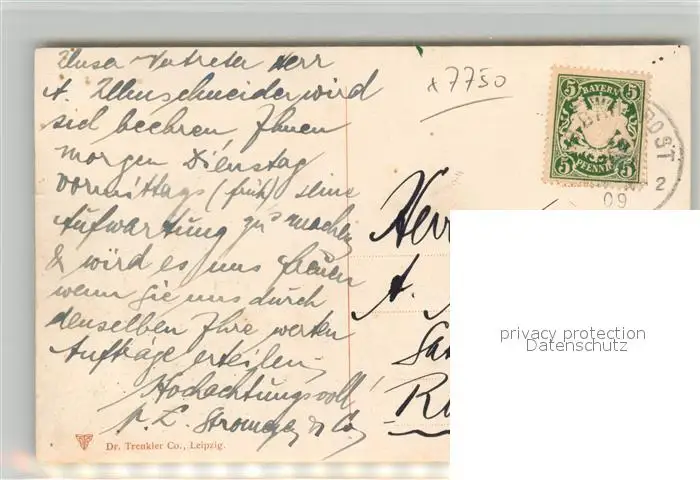 Unser Vertreter Herr
A. Zehnschneider wird
sich beehren, Ihnen
morgen Dienstag
vormittags (früh) seine
Aufwartung zu machen,
& wird es uns freuen
wenn Sie uns durch
denselben Ihre werten
Aufträge erteilen,
Hochachtungsvoll
p. L. Stromeyer & Co.
Dr. Trenkler Co., Leipzig.
x 7750
5 BAYERN 5
5 PFENNIG 5
POST
2
09
Herr
A.
privacy protection
Datenschutz